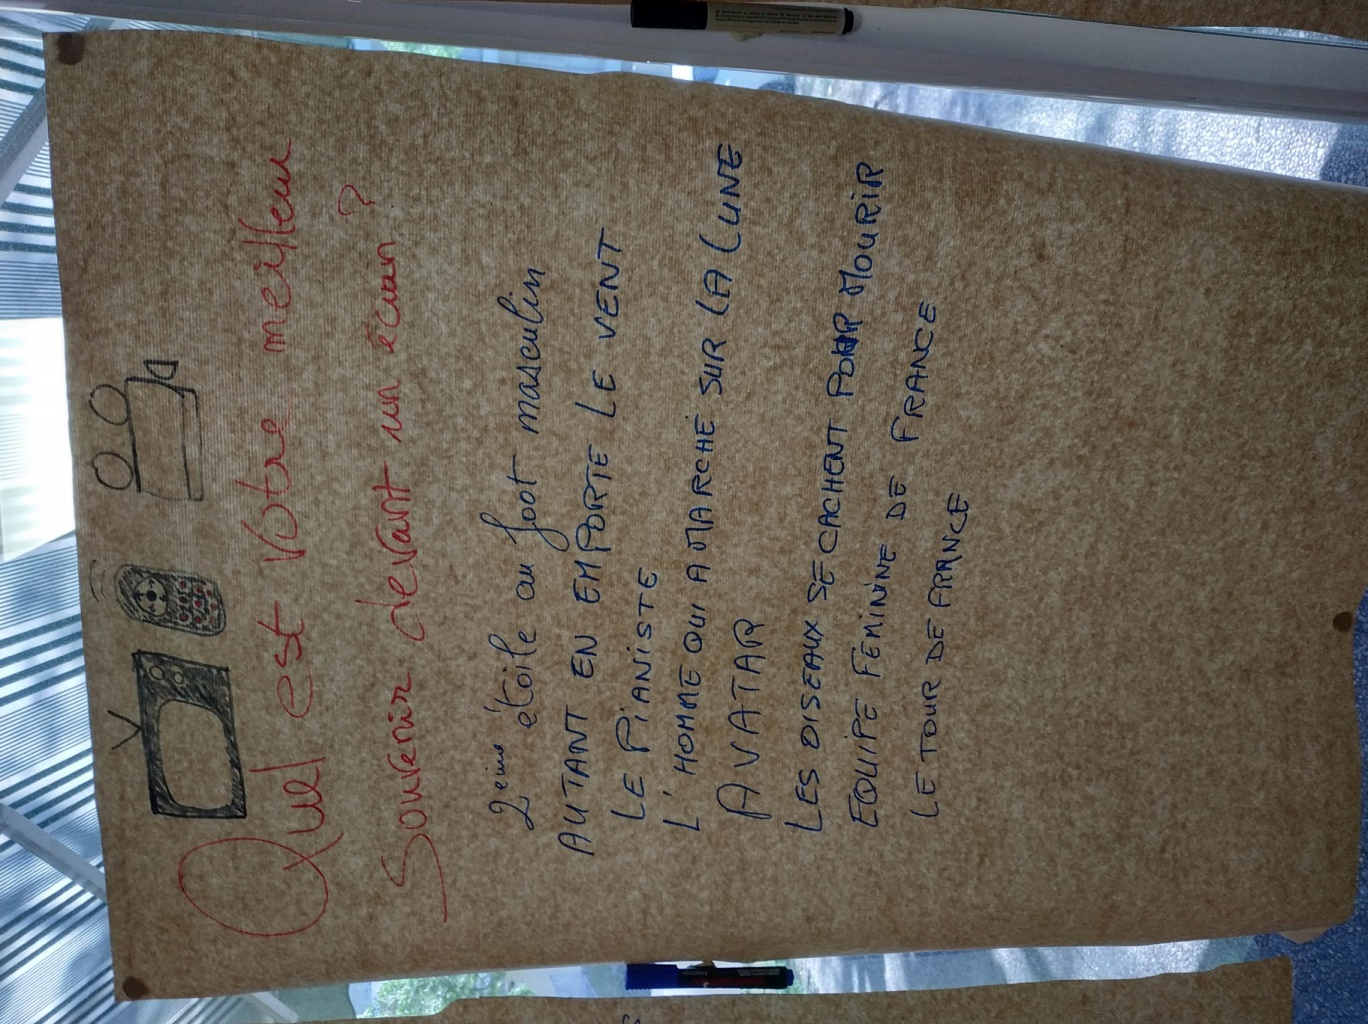 Quel est votre meilleur
souvenir devant un écran ?
2ème étoile au foot masculin
AUTANT EN EMPORTE LE VENT
LE PIANISTE
L'HOMME QUI A MARCHÉ SUR LA LUNE
AVATAR
LES OISEAUX SE CACHENT POUR MOURIR
EQUIPE FEMININE DE FRANCE
LE TOUR DE FRANCE